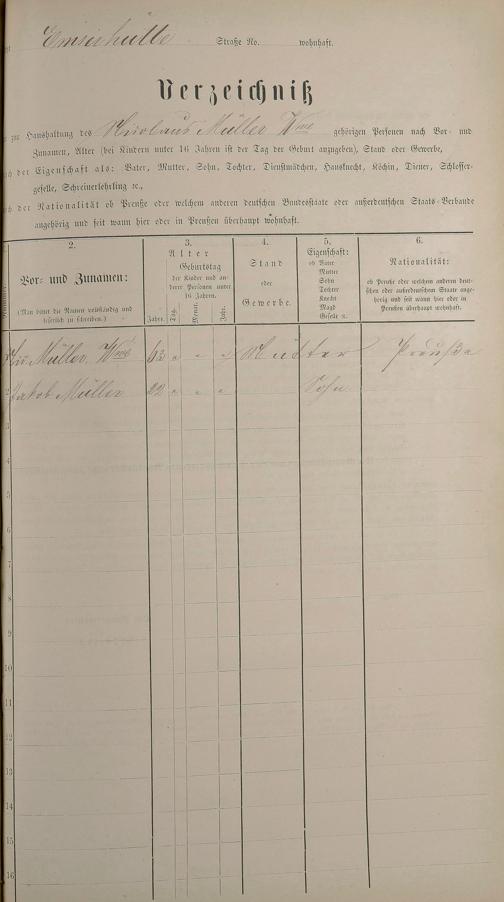 Emserhütte Straße No. wohnhaft.
Verzeichniß
zur Haushaltung des Nicolaus Müller Wwe gehörigen Personen nach Vor- und
Zunamen, Alter (bei Kindern unter 16 Jahren ist der Tag der Geburt anzugeben), Stand oder Gewerbe,
nach der Eigenschaft als: Vater, Mutter, Sohn, Tochter, Dienstmädchen, Hausknecht, Köchin, Diener, Schlosser-
geselle, Schreinerlehrling ꝛc.,
nach der Nationalität ob Preuße oder welchem anderen deutschen Bundesstaate oder außerdeutschen Staats-Verbande
angehörig und seit wann hier oder in Preußen überhaupt wohnhaft.
2.
Vor- und Zunamen:
(Man bittet die Namen vollständig und
leserlich zu schreiben.)
3.
Alter
Geburtstag
der Kinder und an-
derer Personen unter
16 Jahren.
Jahre.
Tag.
Monat.
Jahr.
4.
Stand
oder
Gewerbe.
5.
Eigenschaft:
ob Vater
Mutter
Sohn
Tochter
Knecht
Magd
Geselle ꝛc.
6.
Nationalität:
ob Preuße oder welchem anderen deut-
schen oder außerdeutschen Staate ange-
hörig und seit wann hier oder in
Preußen überhaupt wohnhaft.
Müller, Wwe 63 Mutter Preuße
2 Jakob Müller 22 Sohn
3
4
5
6
7
8
9
10
11
12
13
14
15
16